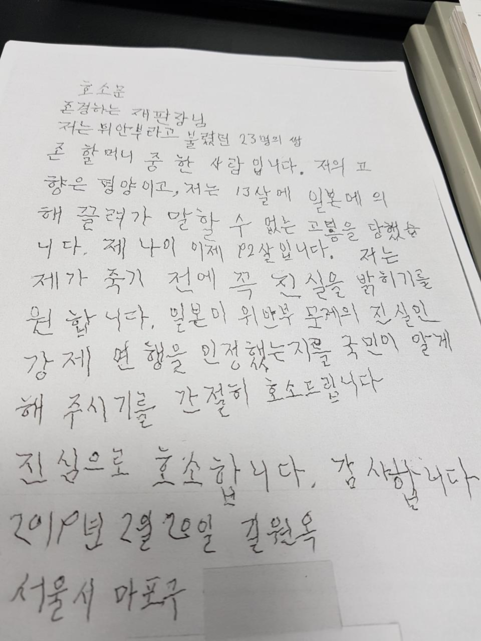 호소문
존경하는 재판장님
저는 위안부라고 불렸던 23명의 생
존 할머니 중 한 사람입니다. 저의 고
향은 평양이고, 저는 13살에 일본에 의
해 끌려가 말할 수 없는 고통을 당했습
니다. 제 나이 이제 92살입니다. 저는
제가 죽기 전에 꼭 진실을 밝히기를
원합니다. 일본이 위안부 문제의 진실인
강제 연행을 인정했는지를 국민이 알게
해 주시기를 간절히 호소드립니다
진심으로 호소합니다. 감사합니다
2019년 2월 20일 길원옥
서울시 마포구